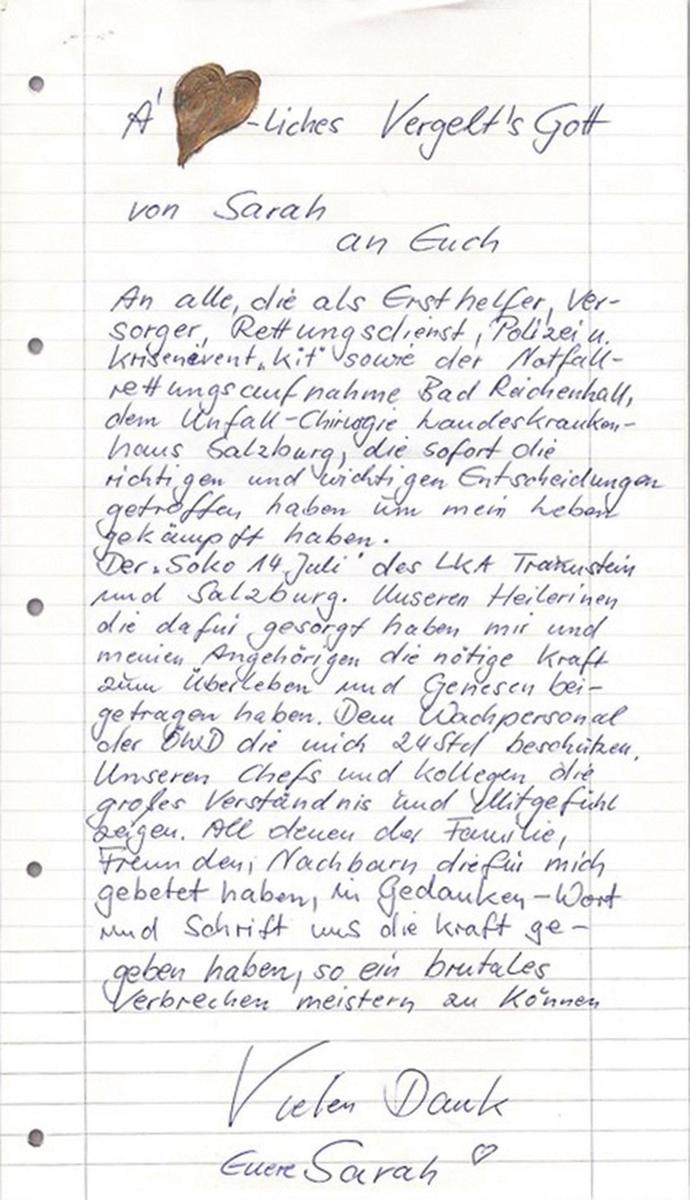 A' -liches Vergelt's Gott
von Sarah
an Euch
An alle, die als Ersthelfer, Ver-
sorger, Rettungsdienst, Polizei u.
Krisenevent „kit" sowie der Notfall-
rettungsaufnahme Bad Reichenhall,
dem Unfall-Chirugie Landeskranken-
haus Salzburg, die sofort die
richtigen und wichtigen Entscheidungen
getroffen haben um mein Leben
gekämpft haben.
Der „Soko 14 Juli" des LKA Traunstein
und Salzburg. Unseren Heilerinen
die dafür gesorgt haben mir und
meinen Angehörigen die nötige Kraft
zum Überleben und Genesen bei-
getragen haben. Dem Wachpersonal
der ÖWD die mich 24 Std beschützen.
Unseren Chefs und Kollegen die
großes Verständnis und Mitgefühl
zeigen. All denen der Familie,
Freunden, Nachbarn die für mich
gebetet haben, in Gedanken-Wort
und Schrift uns die Kraft ge-
geben haben, so ein brutales
Verbrechen meistern zu können
Vielen Dank
Euere Sarah ♡